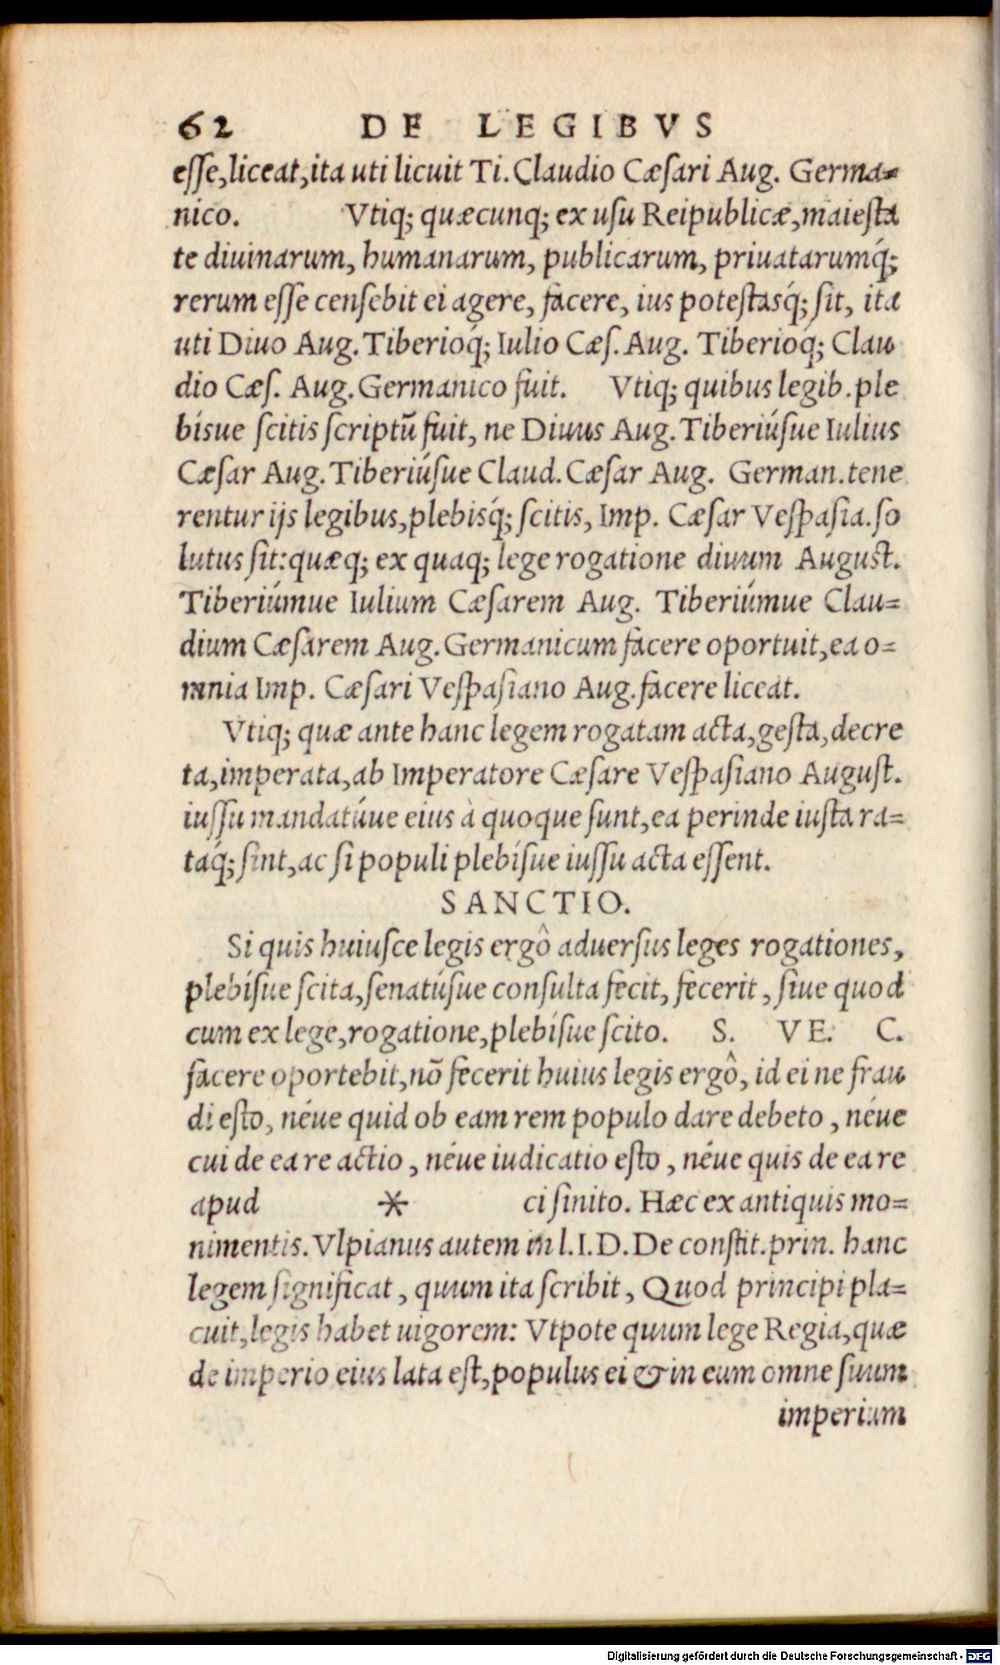 62 DE LEGIBVS
esse, liceat, ita uti licuit Ti. Claudio Cæsari Aug. Germa=
nico. Vtiq; quæcunq; ex usu Reipublicæ, maiesta
te diuinarum, humanarum, publicarum, priuatarumq́;
rerum esse censebit ei agere, facere, ius potestasq́; sit, ita
uti Diuo Aug. Tiberioq́; Iulio Cæs. Aug. Tiberioq́; Clau
dio Cæs. Aug. Germanico fuit. Vtiq; quibus legib. ple
bísue scitis scriptũ fuit, ne Diuus Aug. Tiberiúsue Iulius
Cæsar Aug. Tiberiúsue Claud. Cæsar Aug. German. tene
rentur ijs legibus, plebisq́; scitis, Imp. Cæsar Vespasia. so
lutus sit: quæq; ex quaq; lege rogatione diuum August.
Tiberiúmue Iulium Cæsarem Aug. Tiberiúmue Clau=
dium Cæsarem Aug. Germanicum facere oportuit, ea o=
mnia Imp. Cæsari Vespasiano Aug. facere liceat.
Vtiq; quæ ante hanc legem rogatam acta, gesta, decre
ta, imperata, ab Imperatore Cæsare Vespasiano August.
iussu mandatúue eius à quoque sunt, ea perinde iusta ra=
taq́; sint, ac si populi plebísue iussu acta essent.
SANCTIO.
Si quis huiusce legis ergô aduersus leges rogationes,
plebísue scita, senatúsue consulta fecit, fecerit, siue quod
cum ex lege, rogatione, plebísue scito. S. VE. C.
facere oportebit, nõ fecerit huius legis ergô, id ei ne frau
di esto, néue quid ob eam rem populo dare debeto, néue
cui de ea re actio, néue iudicatio esto, néue quis de ea re
apud * ci sinito. Hæc ex antiquis mo=
nimentis. Vlpianus autem in l. I. D. De constit. prin. hanc
legem significat, quum ita scribit, Quod principi pla=
cuit, legis habet uigorem: Vtpote quum lege Regia, quæ
de imperio eius lata est, populus ei & in eum omne suum
imperium
Digitalisierung gefördert durch die Deutsche Forschungsgemeinschaft - DFG